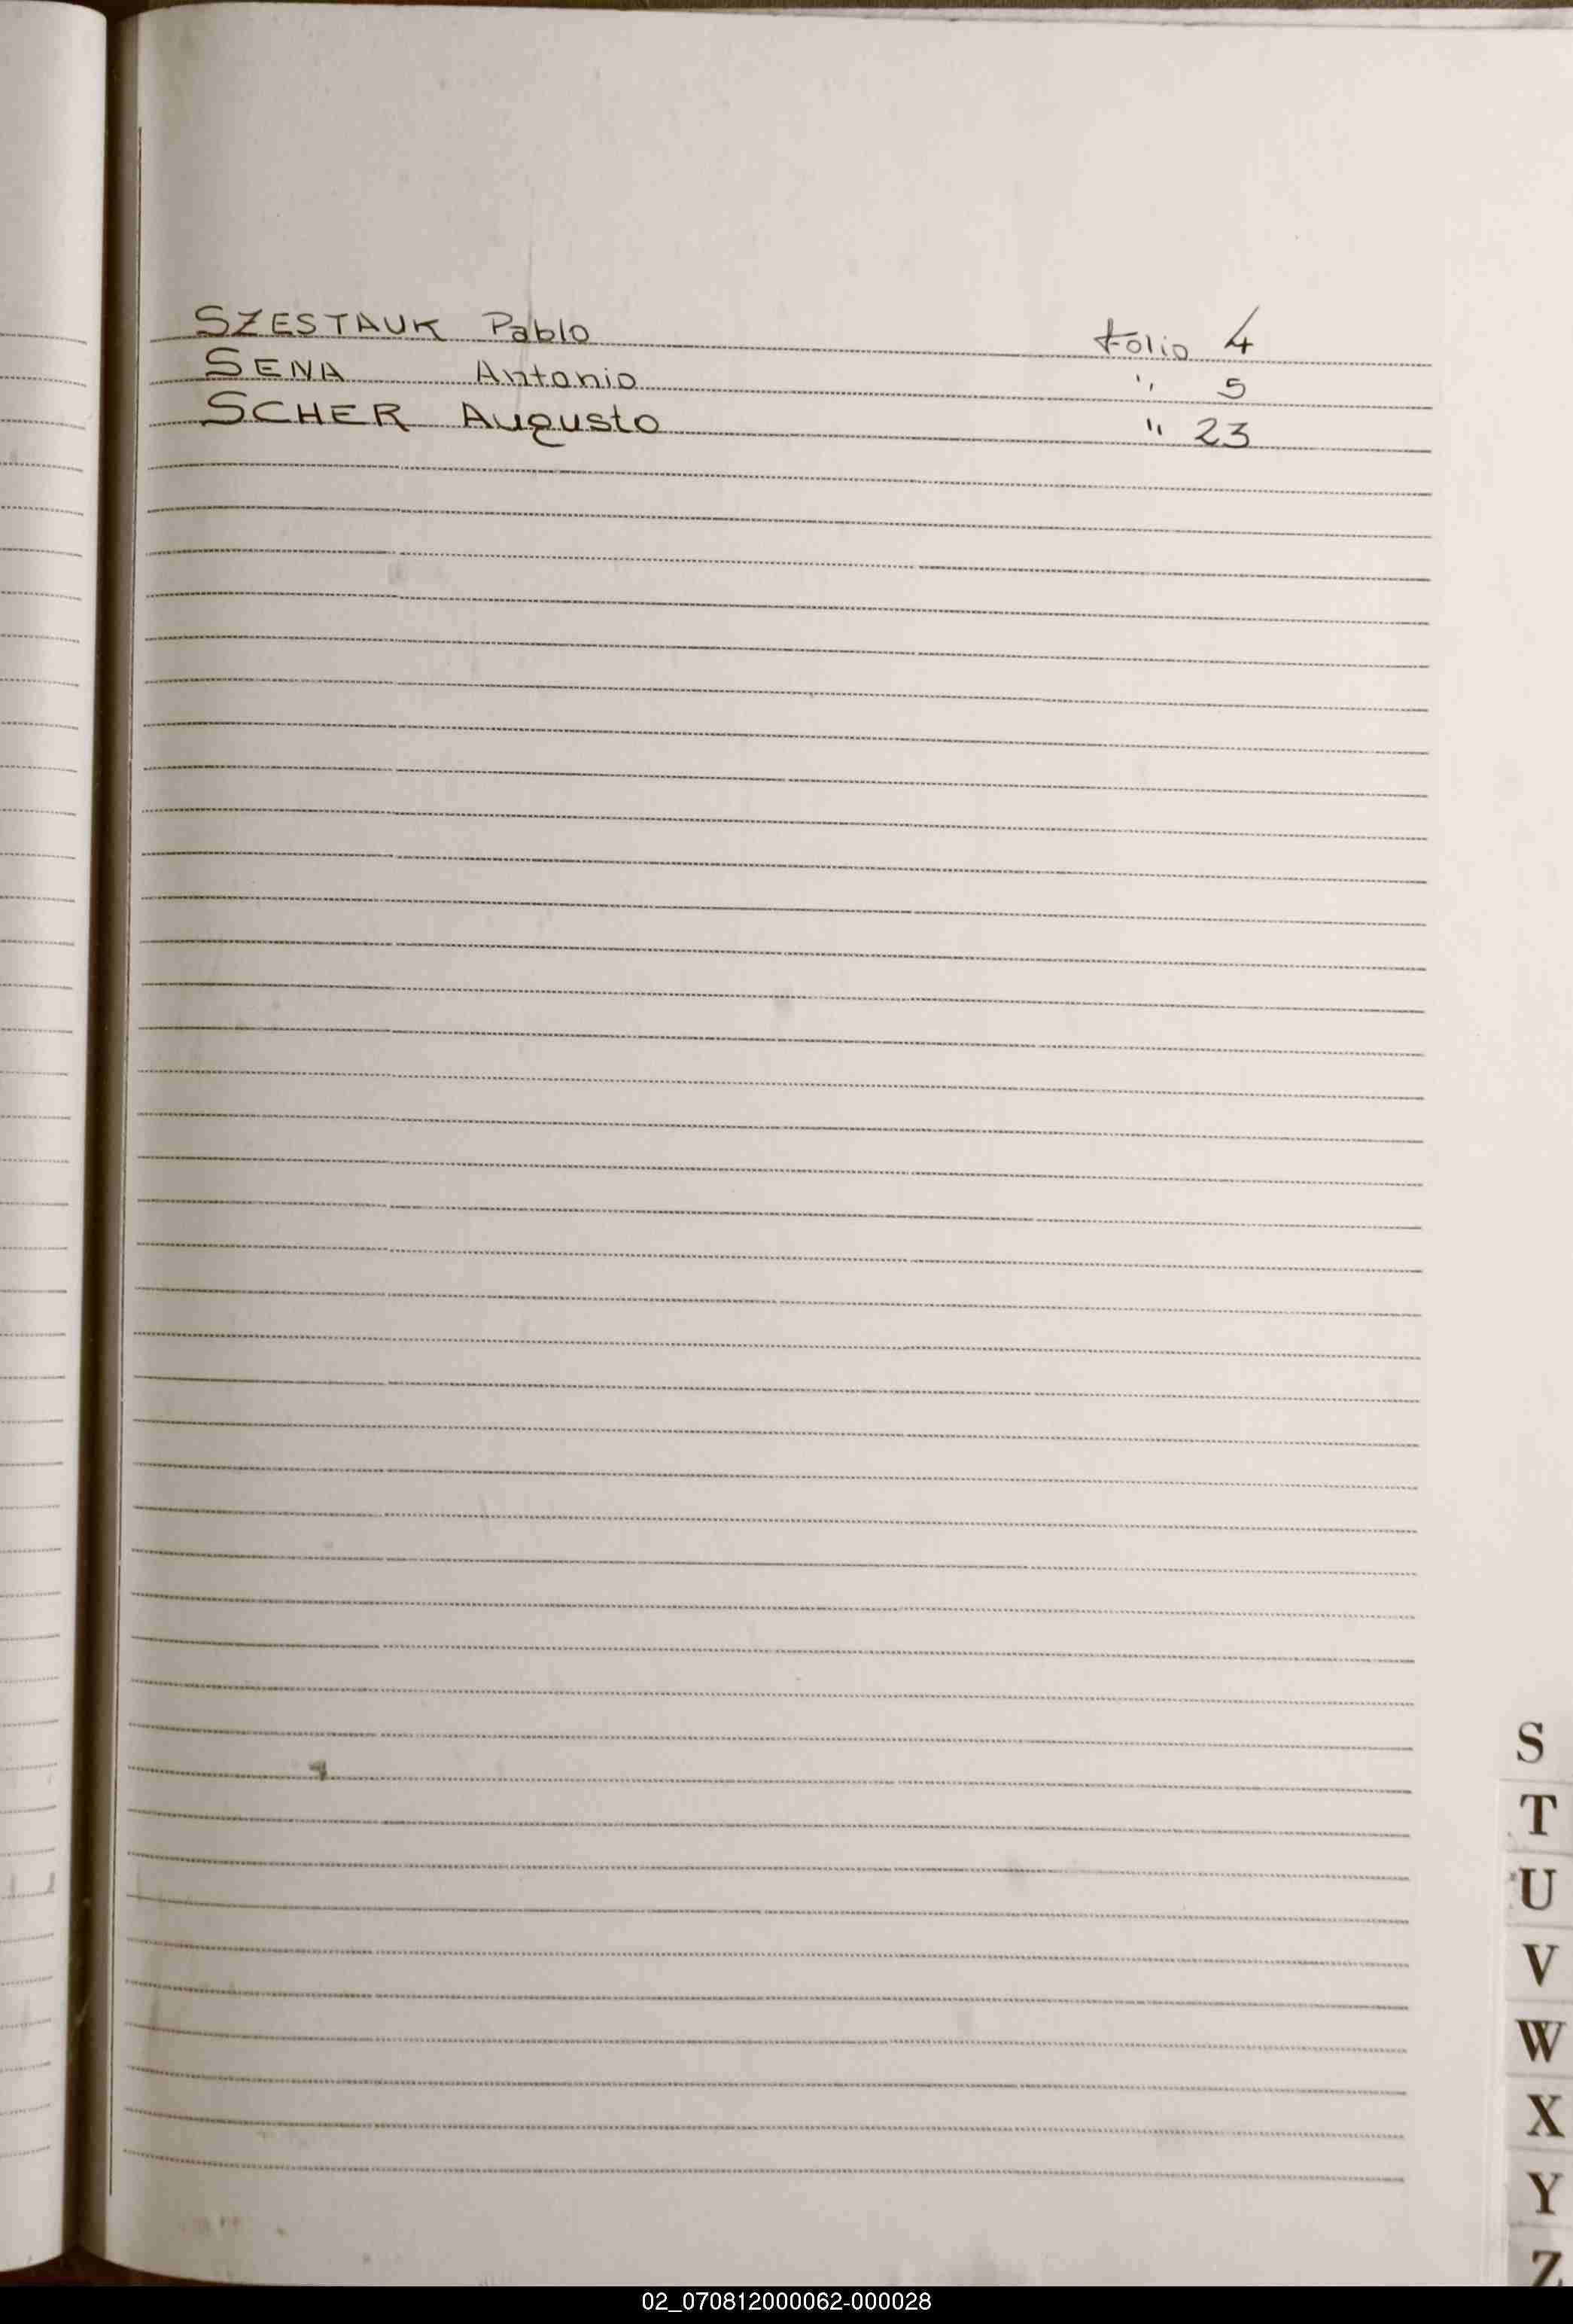 SZESTAUK Pablo folio 4
SENA Antonio " 5
SCHER Augusto " 23
S
T
U
V
W
X
Y
Z
02_070812000062-000028